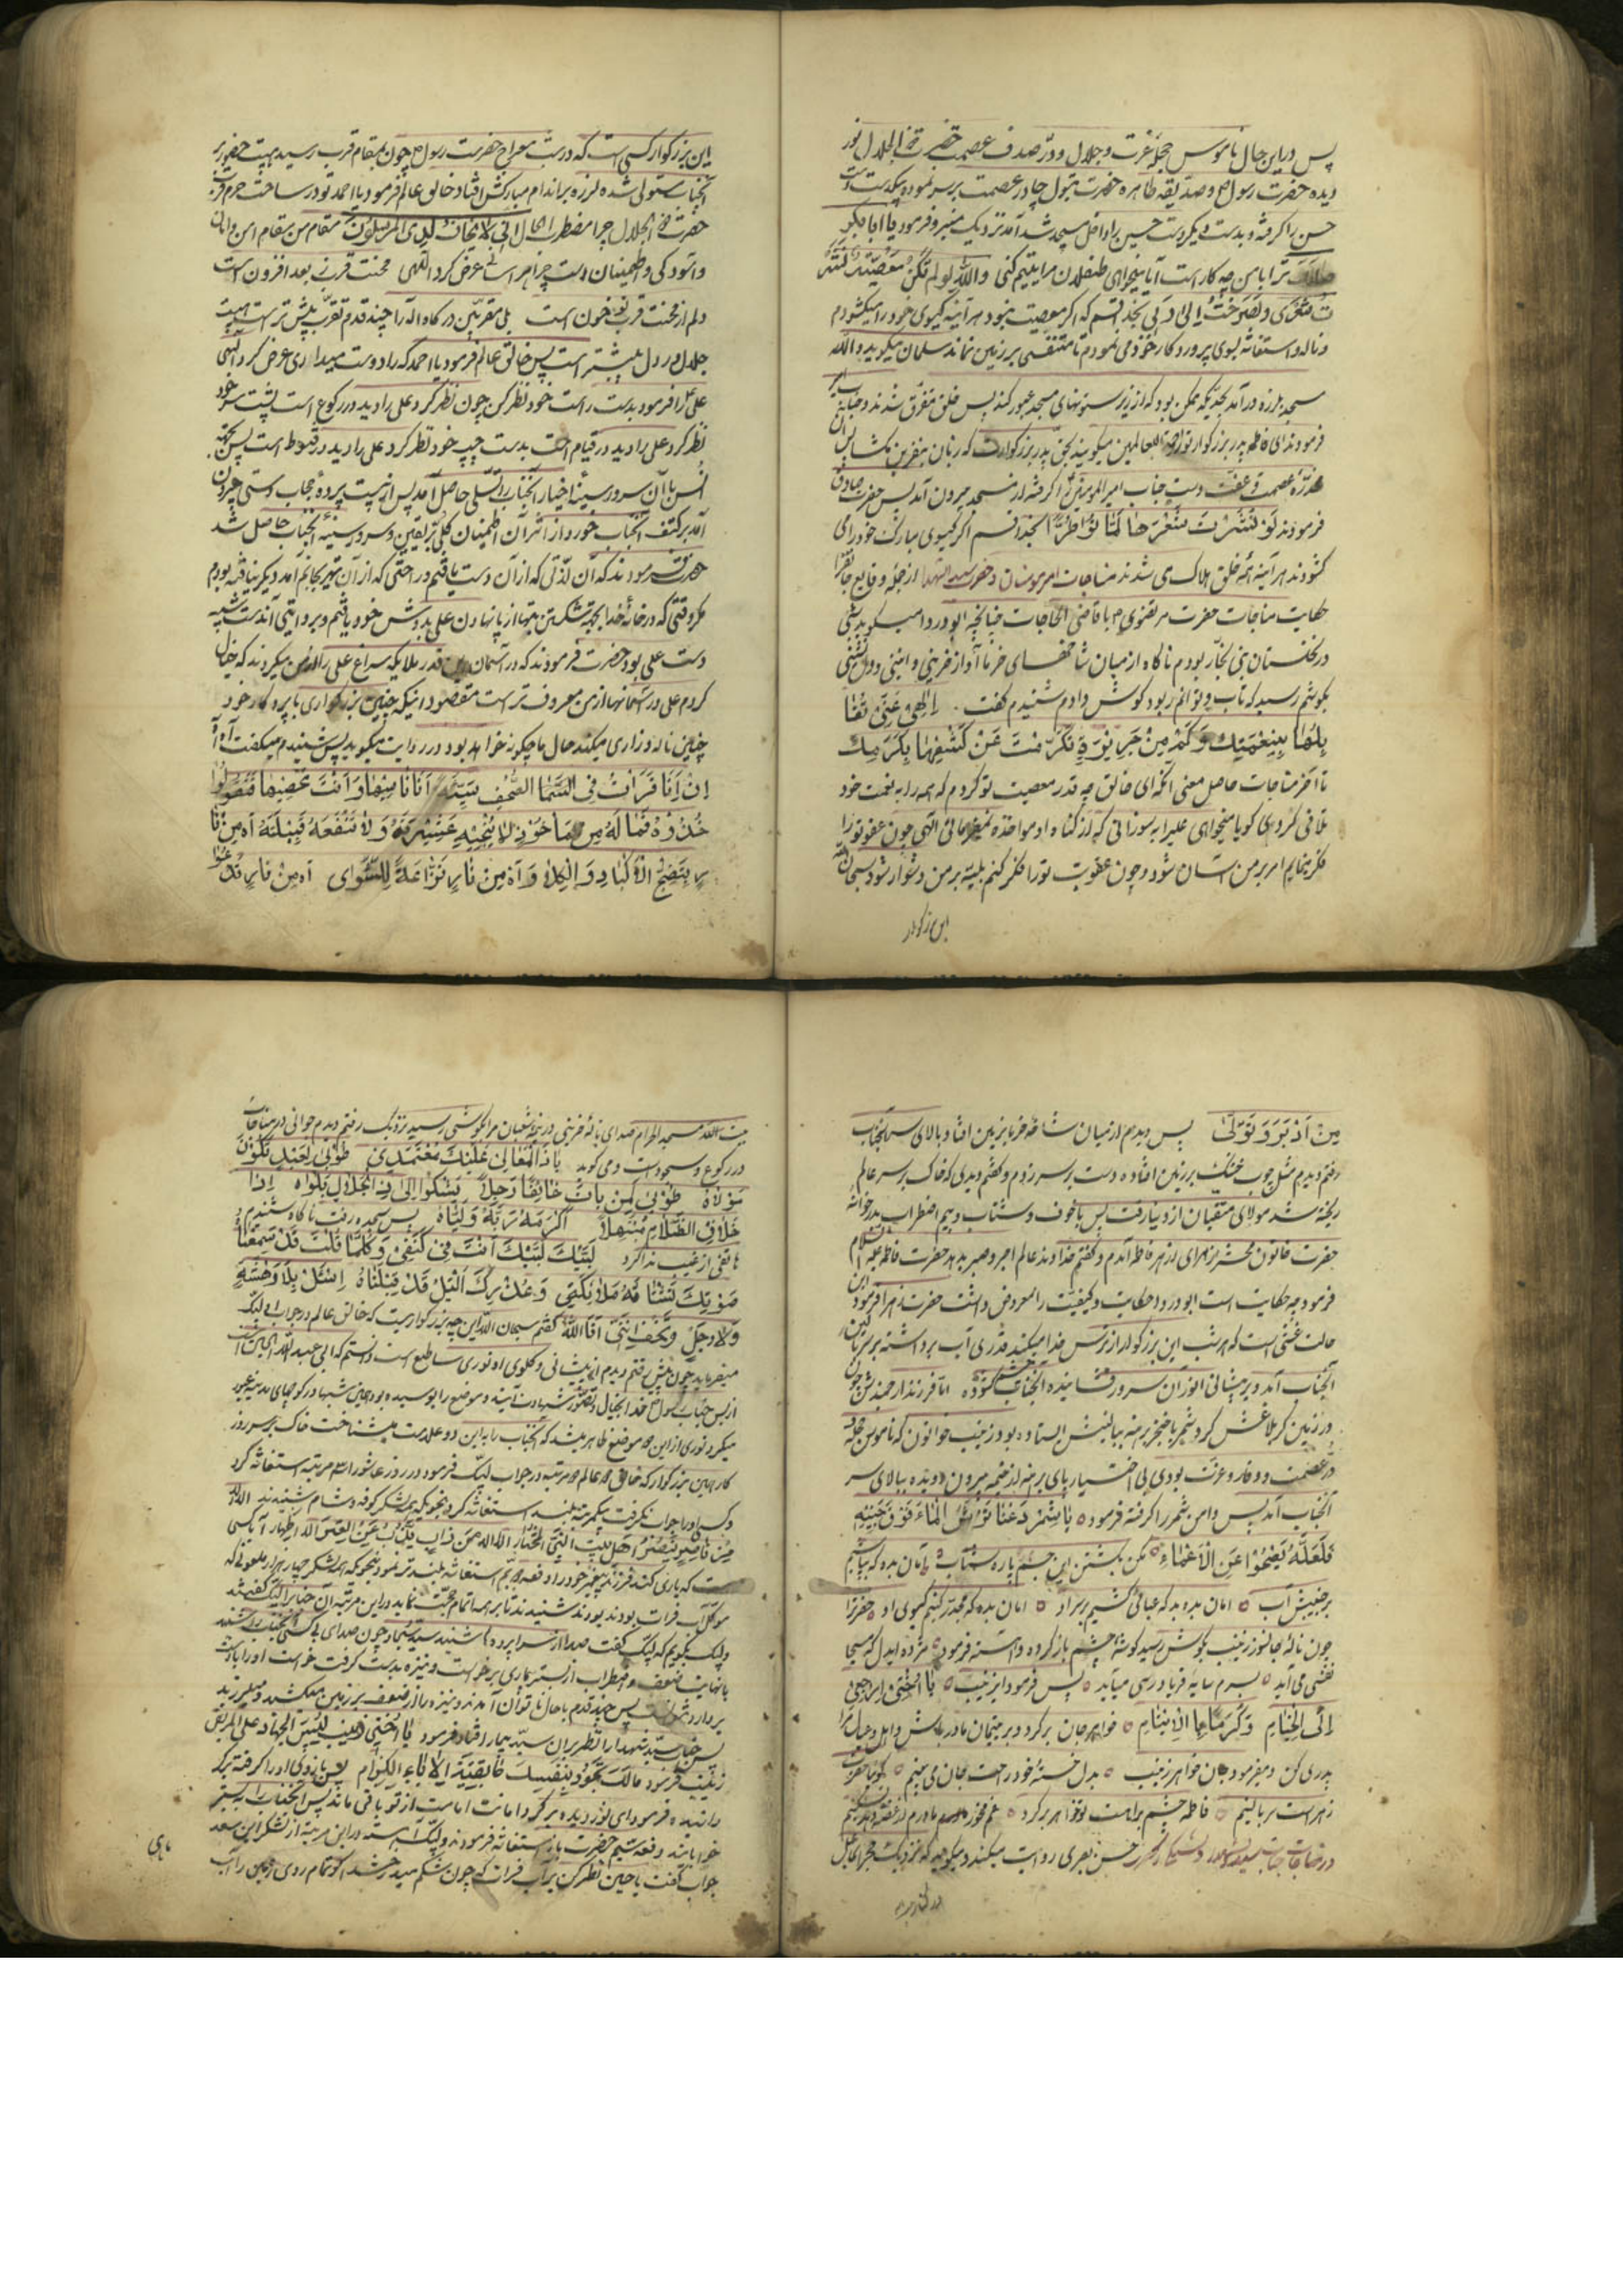 پس در این حال ناموس حجله عزت و جلال و در صدف عصمت حضرت ذی الجلال نور
دیده حضرت رسول و صدیقه طاهره حضرت بتول چادر عصمت بر سر نموده بیکدست دست
حسن را گرفته و بدست دیگر دست حسین را داخل مسجد شد آمد نزدیک منبر و فرمود یا ابابکر
ترا با من چه کار است آیا میخواهی طفلان مرا یتیم کنی والله لو لم تکن معصیة
شعری و لصرخت الی ربی بخدا قسم که اگر معصیت نبود هر آینه گیسوی خود را میگشودم
و ناله و استغاثه بسوی پروردگار خود می نمودم تا متنفسی بر زمین نماند سلمان میگوید والله
مسجد بلرزه در آمد بحدیکه ممکن بود که از زیر ستونهای مسجد عبور کنند پس خلق متفرق شدند و جناب
فرمودند ای فاطمه پدر بزرگوار تو را رحمة للعالمین میگویند بحق پدر بزرگوارت که زبان بنفرین نگشا پس آن
مخدره عصمت و عفت دست جناب امیرالمؤمنین را گرفته از مسجد بیرون آمد پس حضرت صادق
فرمودند لو نشرت شعرها لماتوا طرا بخدا قسم اگر گیسوی مبارک خود را می
گشودند هر آینه همه خلق هلاک می شدند مناجات امیر مؤمنان و حضرت سید الشهدا از جمله وقایع
حکایت مناجات حضرت مرتضوی با قاضی الحاجات چنانچه ابو دردا میگوید شبی
در نخلستان بنی نجار بودم ناگاه از میان شاخهای خرما آواز حزینی و انینی و دل نشینی
بگوشم رسید که تاب و توانم ربود گوش دادم شنیدم گفت الهی
بنعمتک و کم من جریرة تکرمت عن کشفها بکرمک
تا آخر مناجات حاصل معنی آنکه ای خالق چه قدر معصیت تو کردم که همه را به نعمت خود
تلافی کردی گویا میخواهی علی را به سوزانی که از گناه او مواخذه نمیفرمائی الهی چون عفو تو را
فکر مینمایم امر بر من آسان شود و چون عقوبت تو را فکر کنم بلیه بر من دشوار شود سبحان الله
این بزرگوار
این بزرگوار کسی است که در شب معراج حضرت رسول چون بمقام قرب رسید هیبت حضور بر
آنجناب مستولی شده لرزه بر اندام مبارکش افتاد خالق عالم فرمود یا احمد تو در ساحت حرم قرب
حضرت ذی الجلال چرا مضطرب الحال انی لا یخاف لدی المرسلون مقام من مقام امن و امان
و آسودگی و اطمینان است چرا هراسانی عرض کرد الهی محنت قرب ز بعد افزون است
دلم از محنت قرب تو خون است بلی مقربین درگاه اله را چند قدم تقرب بیش تر است هیبت
جلال در دل بیشتر است پس خالق عالم فرمود یا احمد که را دوست میداری عرض کرد الهی
علی را فرمود بدست راست خود نظر کن چون نظر کرد علی را دید در رکوع است پشت سر خود
نظر کرد علی را دید در قیام است بدست چپ خود نظر کرد علی را دید در قنوط است پس بجهة
انس با آن سرور سینه اخیار آنجناب را تسلی حاصل آمد پس از پشت پرده حجاب دستی بیرون
آمد بر کتف آنجناب خورد و از اثر آن اطمینان کلی بر یقین و سرور سینه آنجناب حاصل شد
حضرت فرمودند که آن لذتی که از آن دست یافتم و راحتی که از آن بجانم آمد دیگر نیافته بودم
مگر وقتی که در خانه خدا بجهة شکستن بتها از پا نهادن علی بدوش خود یافتم و بروایتی آندست شبیه
دست علی بود حضرت فرمودند که در آسمان قدر ملائکه سراغ علی را از من میکردند که خیال
کردم علی در آسمانها از من معروف تر است مقصود اینکه چنین بزرگواری با پروردگار خود
چنین ناله و زاری میکند حال ما چگونه خواهد بود در روایت میگوید پس شنیدم میگفت آه آه
ان انا قرات فی الصحف سیئة انا ناسیها و انت محصیها فتقول
خذوه فیا له من ماخوذ لا تنجیه عشیرته و لا تنفعه قبیلته آه من نا
ر تنضج الاکباد و الکلی و آه من نار نزاعة للشوی آه من نار تدعوا
من ادبر و تولی پس دیدم از میان شاخه خرما بزمین افتاد بالای سر آنجناب
رفتم دیدم مثل چوب خشک بر زمین افتاده دست بر سر زدم و گفتم دیدی که خاک بر سر عالم
ریخته شد مولای متقیان از دنیا رفت پس با خوف و شتاب و بیم اضطراب بدر خانه
حضرت خاتون محشر زهرای ازهر فاطمه آمدم و گفتم خداوند عالم اجر و صبر بدهد حضرت فاطمه علیها السلام
فرمود چه حکایت است ابو دردا حکایت و کیفیت را معروض داشت حضرت زهرا فرمود این
حالت غشی است که هر شب این بزرگوار از ترس خدا میکند قدری آب برداشته بر سر بالین
آنجناب آمد و بر پیشانی انور آن سرور فشانیده آنجناب چشم گشوده اما فرزند ارجمندش چون
در زمین کربلا غش کرد شمر با خنجر برهنه ببالینش ایستاده بود زینب خواتون که ناموس حجله
در عصمت و وقار و عزت بودی بی اختیار پای برهنه از خیمه بیرون دویده ببالای سر
آنجناب آمد پس دامن شمر را گرفته فرموده یا شمر دعنا نرش الماء فوق جبینه
فلعله یصحوا عن الاغماء مکن بکشتن این جسم پاره شتاب امان بده که بپاشیم
بر جبینش آب امان بده بدکه عبائی کشیم بر سر او امان بده که مجدد کنیم گیسوی او حضرت
چون ناله جانسوز زینب بگوش رسید گوشه چشم باز کرده و آهسته فرموده مژده ایدل که مسیحا
نفسی می آید بسرم سایه فریاد رسی میآید پس فرمود ای زینب یا اختی ارجعی
الی الخیام و کرما الایتام خواهر جان برگرد و بر یتیمان مادر باش و اهل و عیال مرا
پدری کن و میفرمود جان خواهر زینب بدل خسته خود راحت جان می بینم گویا حضرت
زهراست ببالینم فاطمه چشم براهست تو خواهر برگرد
در مناجات جناب سید الشهدا حسن بصری روایت میکند و میگوید که نزدیک حجر الکعبه
بیت الله مسجد الحرام صدای ناله حزینی در نیمه شعبان مرا بگوش رسید نزدیک رفتم دیدم جوانی در مناجات
در رکوع و سجود است و می گوید یا ذا المعالی علیک معتمدی طوبی لعبد تکون
مولاه طوبی لمن بات خائفا وجلا یشکوا الی ذی الجلال بلواه اذا
خلا فی الظلام مبتهلا اکرمه ربه و لباه پس سجده رفت ناگاه شنیدم
هاتفی از غیب ندا کرد لبیک لبیک انت فی کنفی و کلما قلت قد سمعناه
صوتک تشتاقه ملائکتی و عذرک اللیل قد قبلناه اسئل بلا دهشة
و لا وجل و لا تخف اننی انا الله گفتم سبحان الله این چه بزرگواریست که خالق عالم در جواب لبیک
میفرماید چون پیش رفتم دیدم از پیشانی و گلوی او نوری ساطع است دانستم که ابی عبد الله الحسین است
از بس جناب رسول خدا بخیال و تصور شهادت آینده موضع را بوسیده بود چنین شبها در کوچهای مدینه عبور
میکرد نوری از این دو موضع ظاهر میشد که آنجناب را به این دو علامت میشناخت خاک بر سر روز
کار این بزرگوار که خالق عالم مرتبه در جواب لبیک فرمود در روز عاشورا مرتبه استغاثه کرد
و کسی او را جواب نگرفت یکمرتبه بلند استغاثه کرد بنحویکه همه لشکر کوفه و شام شنیدند الا
من ناصر ینصر اهل بیت النبی المختار الا الا من ذاب یذب عن العترة الاطهار آیا کسی
هست که یاری کند فرزند پیغمبر خود را دفعه دیگر باهم استغاثه بلند تر نمود بنحوی که همه لشکر چهار هزار ملعونی که
موکل آب فرات بودند بودند شنیدند تا بر همه اتمام حجت نماید در این مرتبه آن حضرت را لبیک گفته شد
ولیک بگویم که لبیک گفت صدا از سرا پرده شنید سید سجاد چون صدای بی کسی آنجناب شنید
با نهایت ضعف و اضطراب از بستر بیماری برخاست و نیزه بدست گرفت خواست او را با دست
بردارد نتوانست پس چند قدم با حال ناتوان آمدند و نیزه را از ضعف بر زمین میکشید و میلرزید
پس جناب سید شهدا را نظر بر آن سید بیمار افتاد فرمود یا اختی زینب لیس الجهاد علی المریض
زینب فرمود مالک تجود بنفسک یا بقیة الاباء الکرام پس بازوی او را گرفته برگر
دانیده فرمود ای نور دیده برگرد امانت امامت از تو باقی ماند پس آنجناب را به بستر
خوابانید دفعه سیم حضرت باز استغاثه فرمودند و لبیک آهسته در این مرتبه از لشکر ابن سعد
جواب گفت یا حسین نظر کن بر آب فرات که چون شکم مید رخشد اگر تمام روی زمین را آب